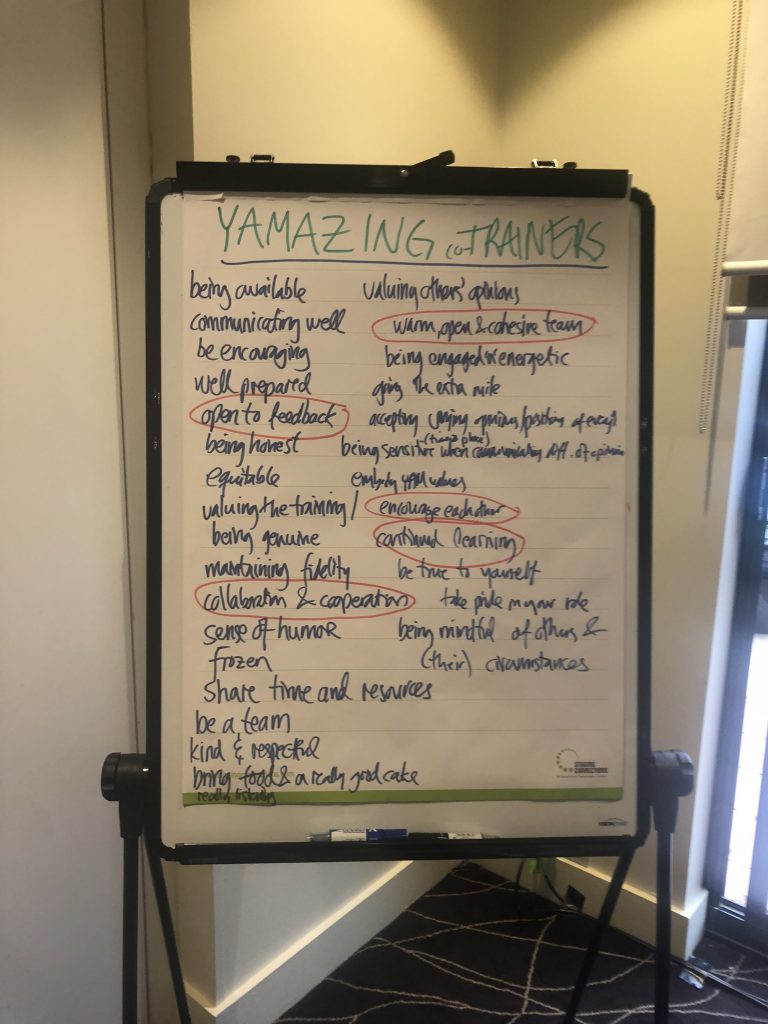 YAMAZING co-TRAINERS
being available
communicating well
be encouraging
well prepared
open to feedback
being honest
equitable
valuing the training/
being genuine
maintaining fidelity
collaboration & cooperation
sense of humor
frozen
share time and resources
be a team
kind & respectful
bring food & a really good cake
really listening
valuing others' opinions
warm, open & cohesive team
being engaged & energetic
going the extra mile
accepting varying opinions/positions of
(time & place)
being sensitive when communicating diff. of opinion
embody YAM values
encourage each other
continued learning
be true to yourself
take pride in your role
being mindful of others &
(their) circumstances
STAGING
CONNECTIONS